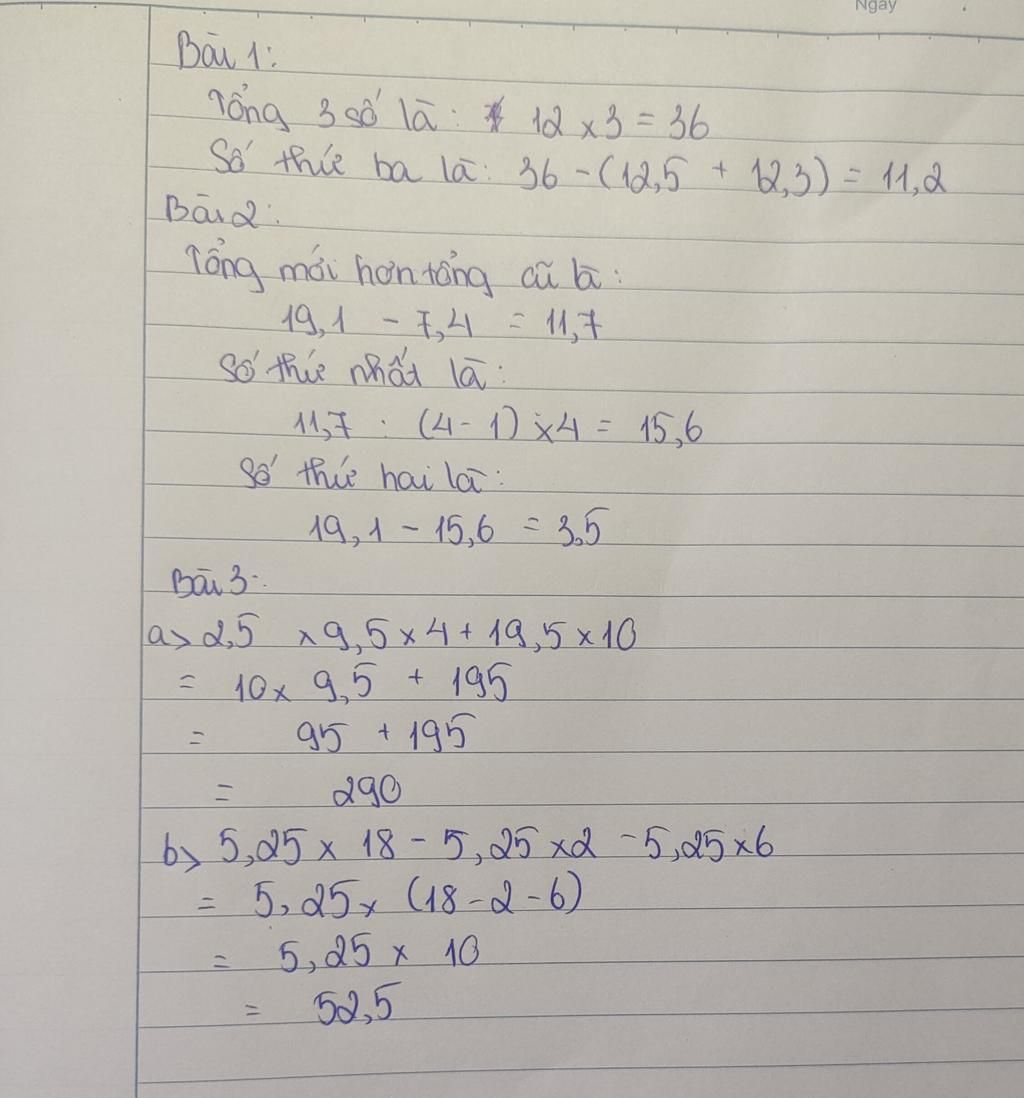 Ngày
Bài 1:
Tổng 3 số là: 12 x 3 = 36
Số thứ ba là: 36 - (12,5 + 12,3) = 11,2
Bài 2:
Tổng mới hơn tổng cũ là:
19,1 - 7,4 = 11,7
Số thứ nhất là:
11,7 : (4 - 1) x 4 = 15,6
Số thứ hai là:
19,1 - 15,6 = 3,5
Bài 3:
a> 2,5 x 9,5 x 4 + 19,5 x 10
= 10 x 9,5 + 195
= 95 + 195
= 290
b> 5,25 x 18 - 5,25 x 2 - 5,25 x 6
= 5,25 x (18 - 2 - 6)
= 5,25 x 10
= 52,5